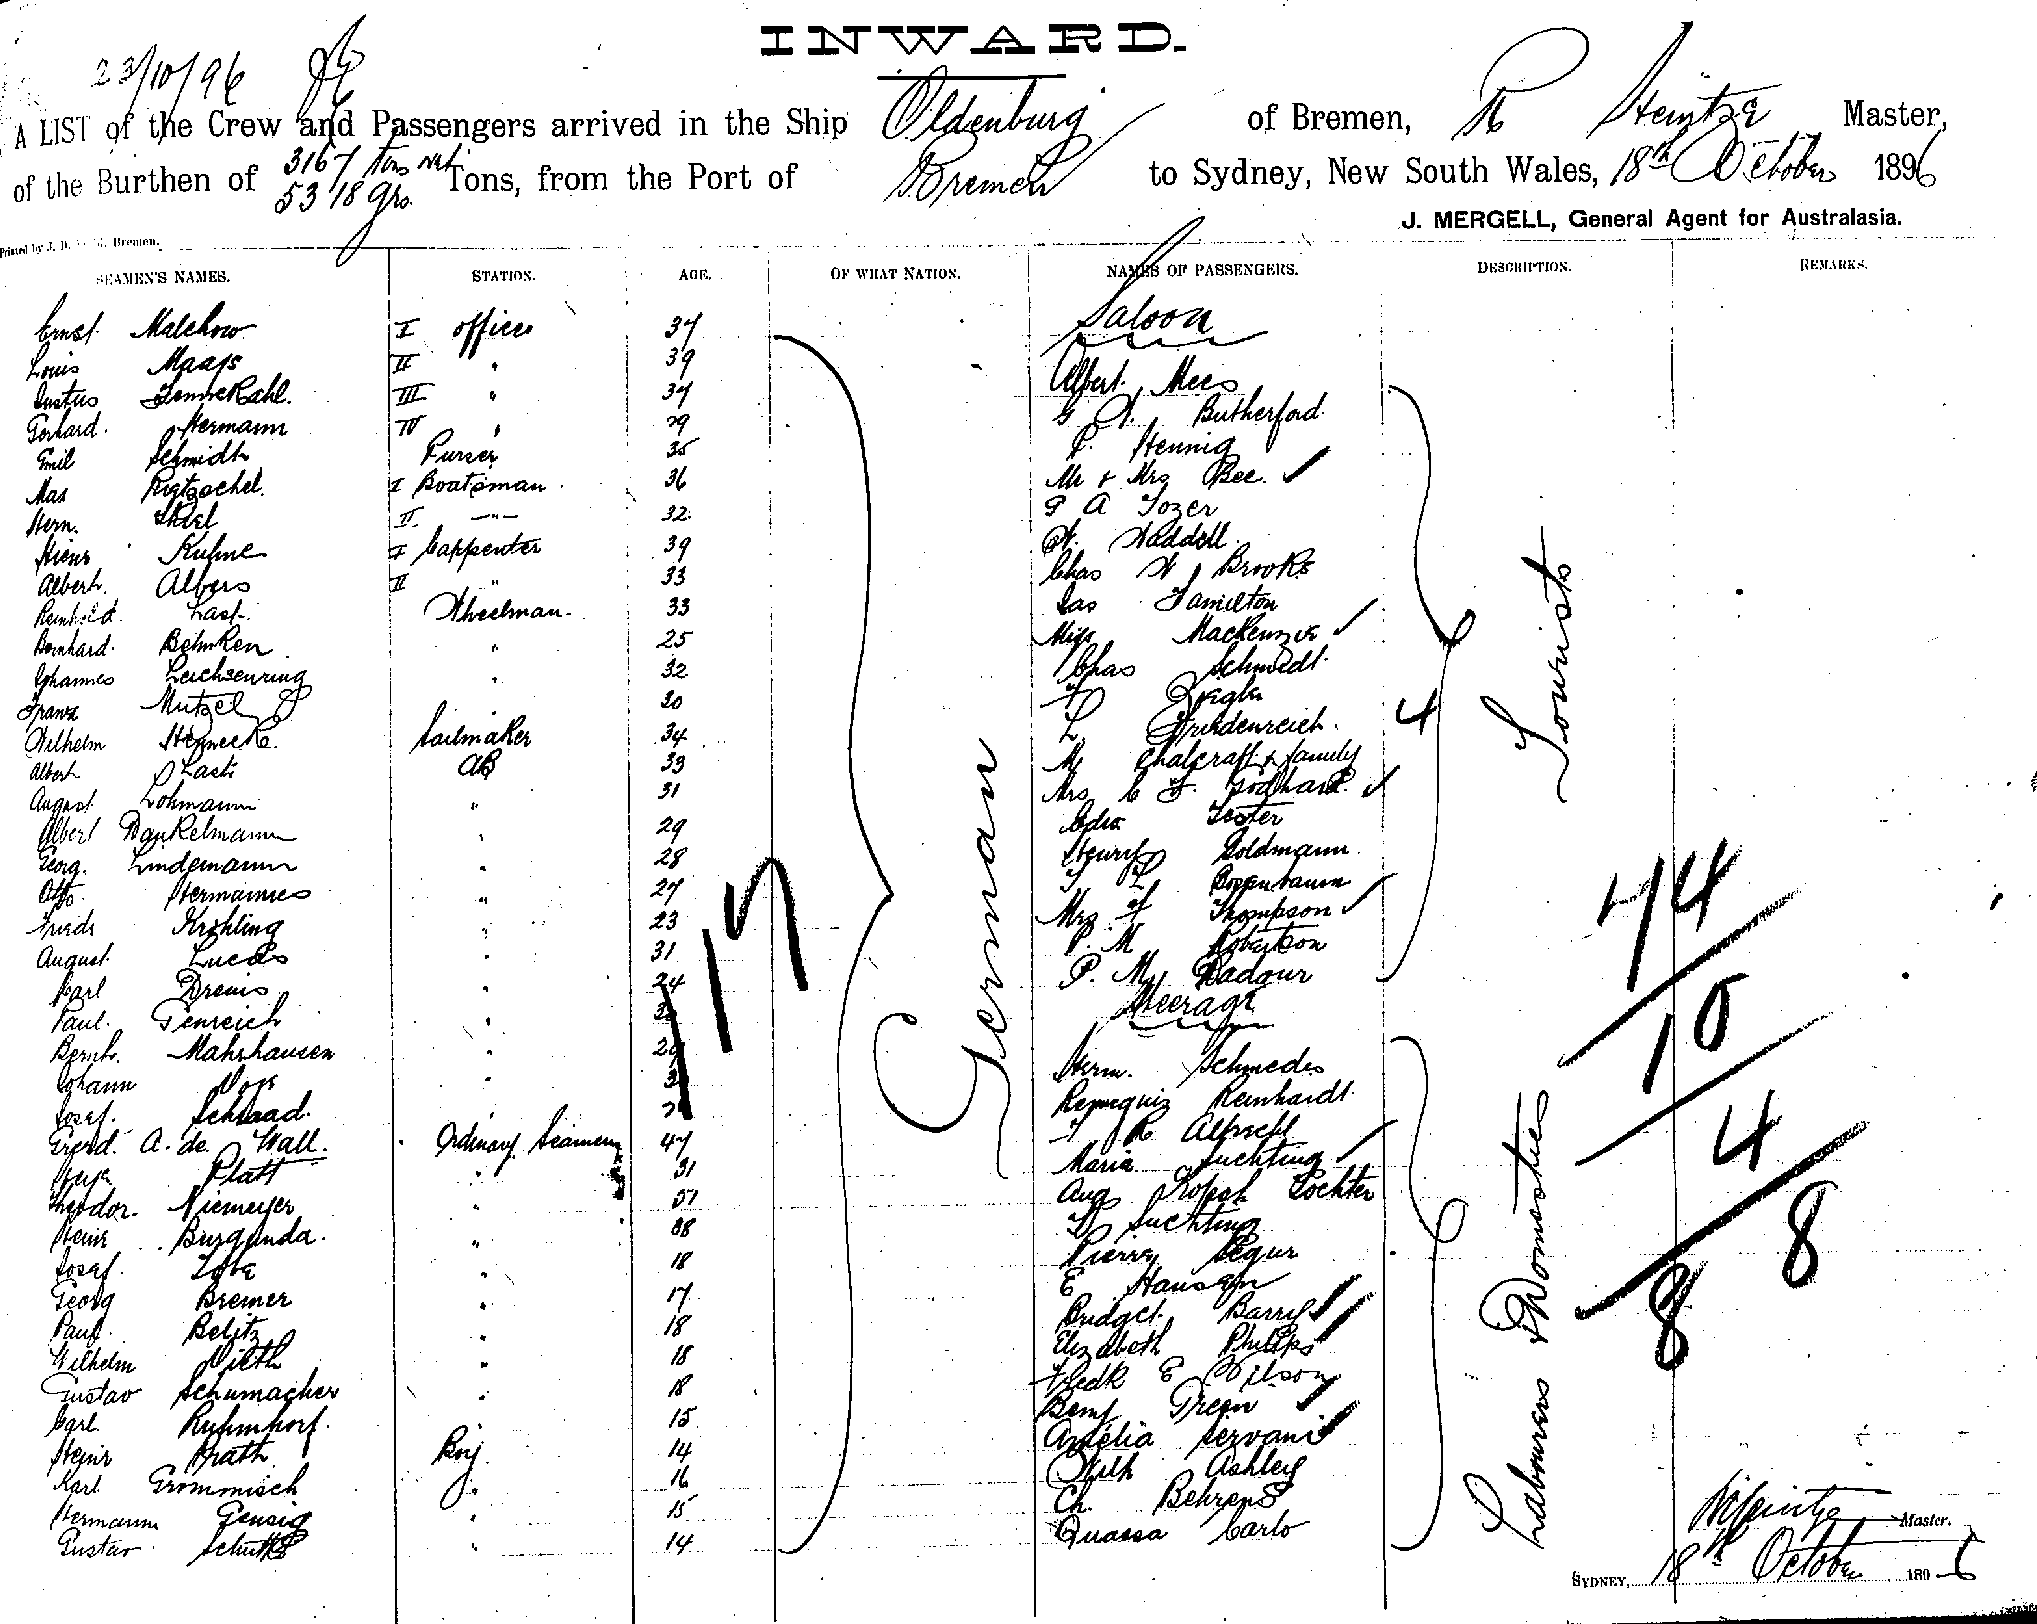 INWARD.
23/10/96
A LIST of the Crew and Passengers arrived in the Ship Oldenburg of Bremen, R Heintze Master,
of the Burthen of 3167 tons net 5318 grs. Tons, from the Port of Bremen to Sydney, New South Wales, 18th October 1896
J. MERGELL, General Agent for Australasia.
Printed by J. D. Bremen.
SEAMEN'S NAMES. STATION. AGE. OF WHAT NATION. NAMES OF PASSENGERS. DESCRIPTION. REMARKS.
Ernst Malchow I officer 37
Louis Maass II " 39
Justus III " 34
Gerhard Hermann IV " 29
Emil Schmidt Purser 35
Max I Boatsman 36
Herm. Thiel II —"— 32
Heinr Kuhne I Cappenter 39
Albert. Albers II " 33
Reinhold Last. Wheelman. 33
Bernhard. Behnken " 25
Johannes Leichsenring " 32
Franz Mutzel 30
Wilhelm Hennecke. Sailmaker 34
Albert Last AB 33
August Lohmann " 31
Albert Dankelmann " 29
Georg. Lindemann " 28
Otto Hermannes " 27
Friedr Krohling " 23
August Lucas " 31
Karl Drews " 24
Paul. Genreich "
Bernh. Mahrhausen "
Johann "
Josef. Schaad. "
Gerd. A. de Wall. Ordinary Seamen 47
Platt " 31
Theodor. Niemeyer "
Heinr Burgunda. "
Josef. " 18
Georg Bremer " 17
Paul Belitz " 18
Wilhelm Vieth " 18
Gustav Schumacher " 18
Carl Ruhmkorf. 15
Heinr Prath Boy 14
Karl Grommisch " 16
Hermann Gensig " 15
Gustav " 14
17
German
Saloon
Albert Mees
G W. Butherford
P. Hennig
Mr & Mrs Bee.
G A Tozer
W. Waddell.
Chas W Brooks
Jas Hamilton
Miss MacKenzie
Chas Schmidt
F Ziegler
L Friedenreich.
M Chalcraft & family
Mrs C F. Godhard.
Foster
Henry Goldmann
Mrs F Thompson
P. M Robertson
P. M. Badour
Steerage
Herm. Schmedes
Remequis Reinhardt
F R Albrecht
Maria Suchting
Aug Tochter
D Suchting
Pierre Segur
E Hansen
Bridget Barry
Elizabeth Philips
Fredk E Wilson
Benj Green
Amelia Servani
Wilh Ashley
Ch. Behrens
Quassa Carlo
4
Tourists
Labourers & Domestics
44
10
4
8
8
R Heintze Master.
SYDNEY, 18th October 1896